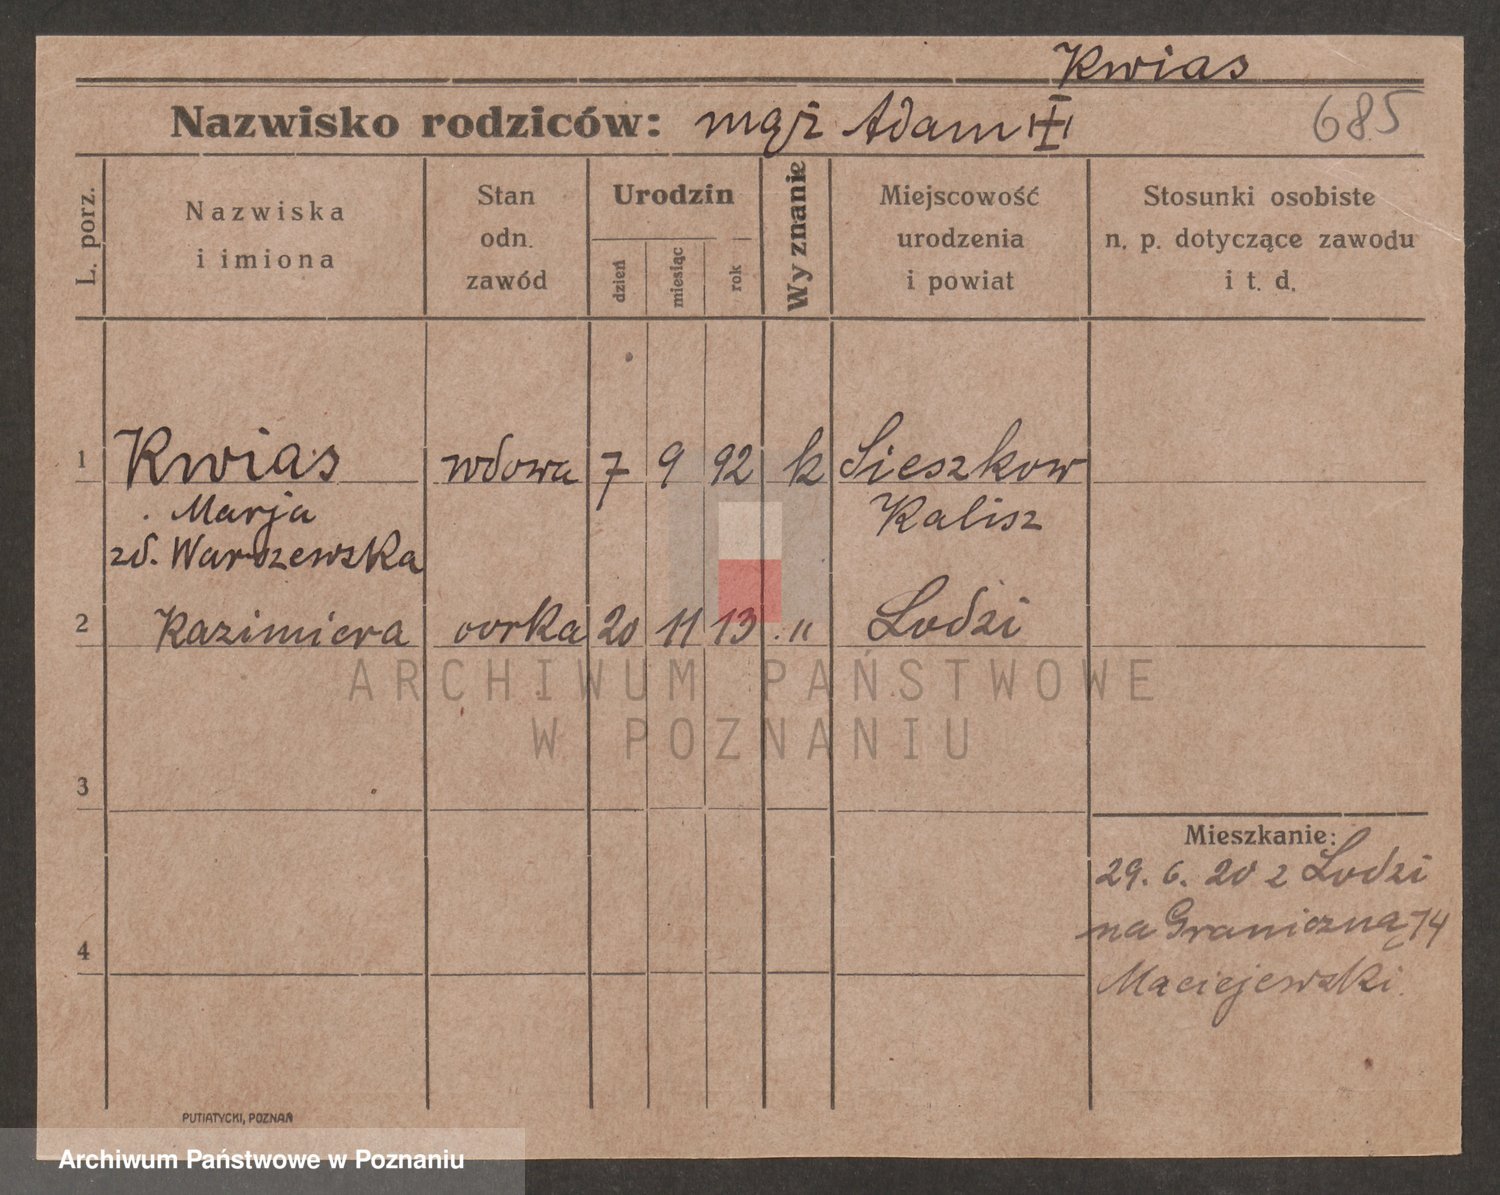 Kwias
Nazwisko rodziców: mąż Adam
685
L. porz.
Nazwiska
i imiona
Stan
odn.
zawód
Urodzin
dzień
miesiąc
rok
Wyznanie
Miejscowość
urodzenia
i powiat
Stosunki osobiste
n. p. dotyczące zawodu
i t. d.
1 Kwias wdowa 7 9 92 k Sieszkow
Marja Kalisz
zd. Warszewska
2 Kazimiera córka 20 11 13 " Lodzi
ARCHIWUM PAŃSTWOWE
W POZNANIU
3
Mieszkanie:
29. 6. 20 z Lodzi
na Graniczną 14
Maciejewski.
4
PUTIATYCKI, POZNAŃ
Archiwum Państwowe w Poznaniu